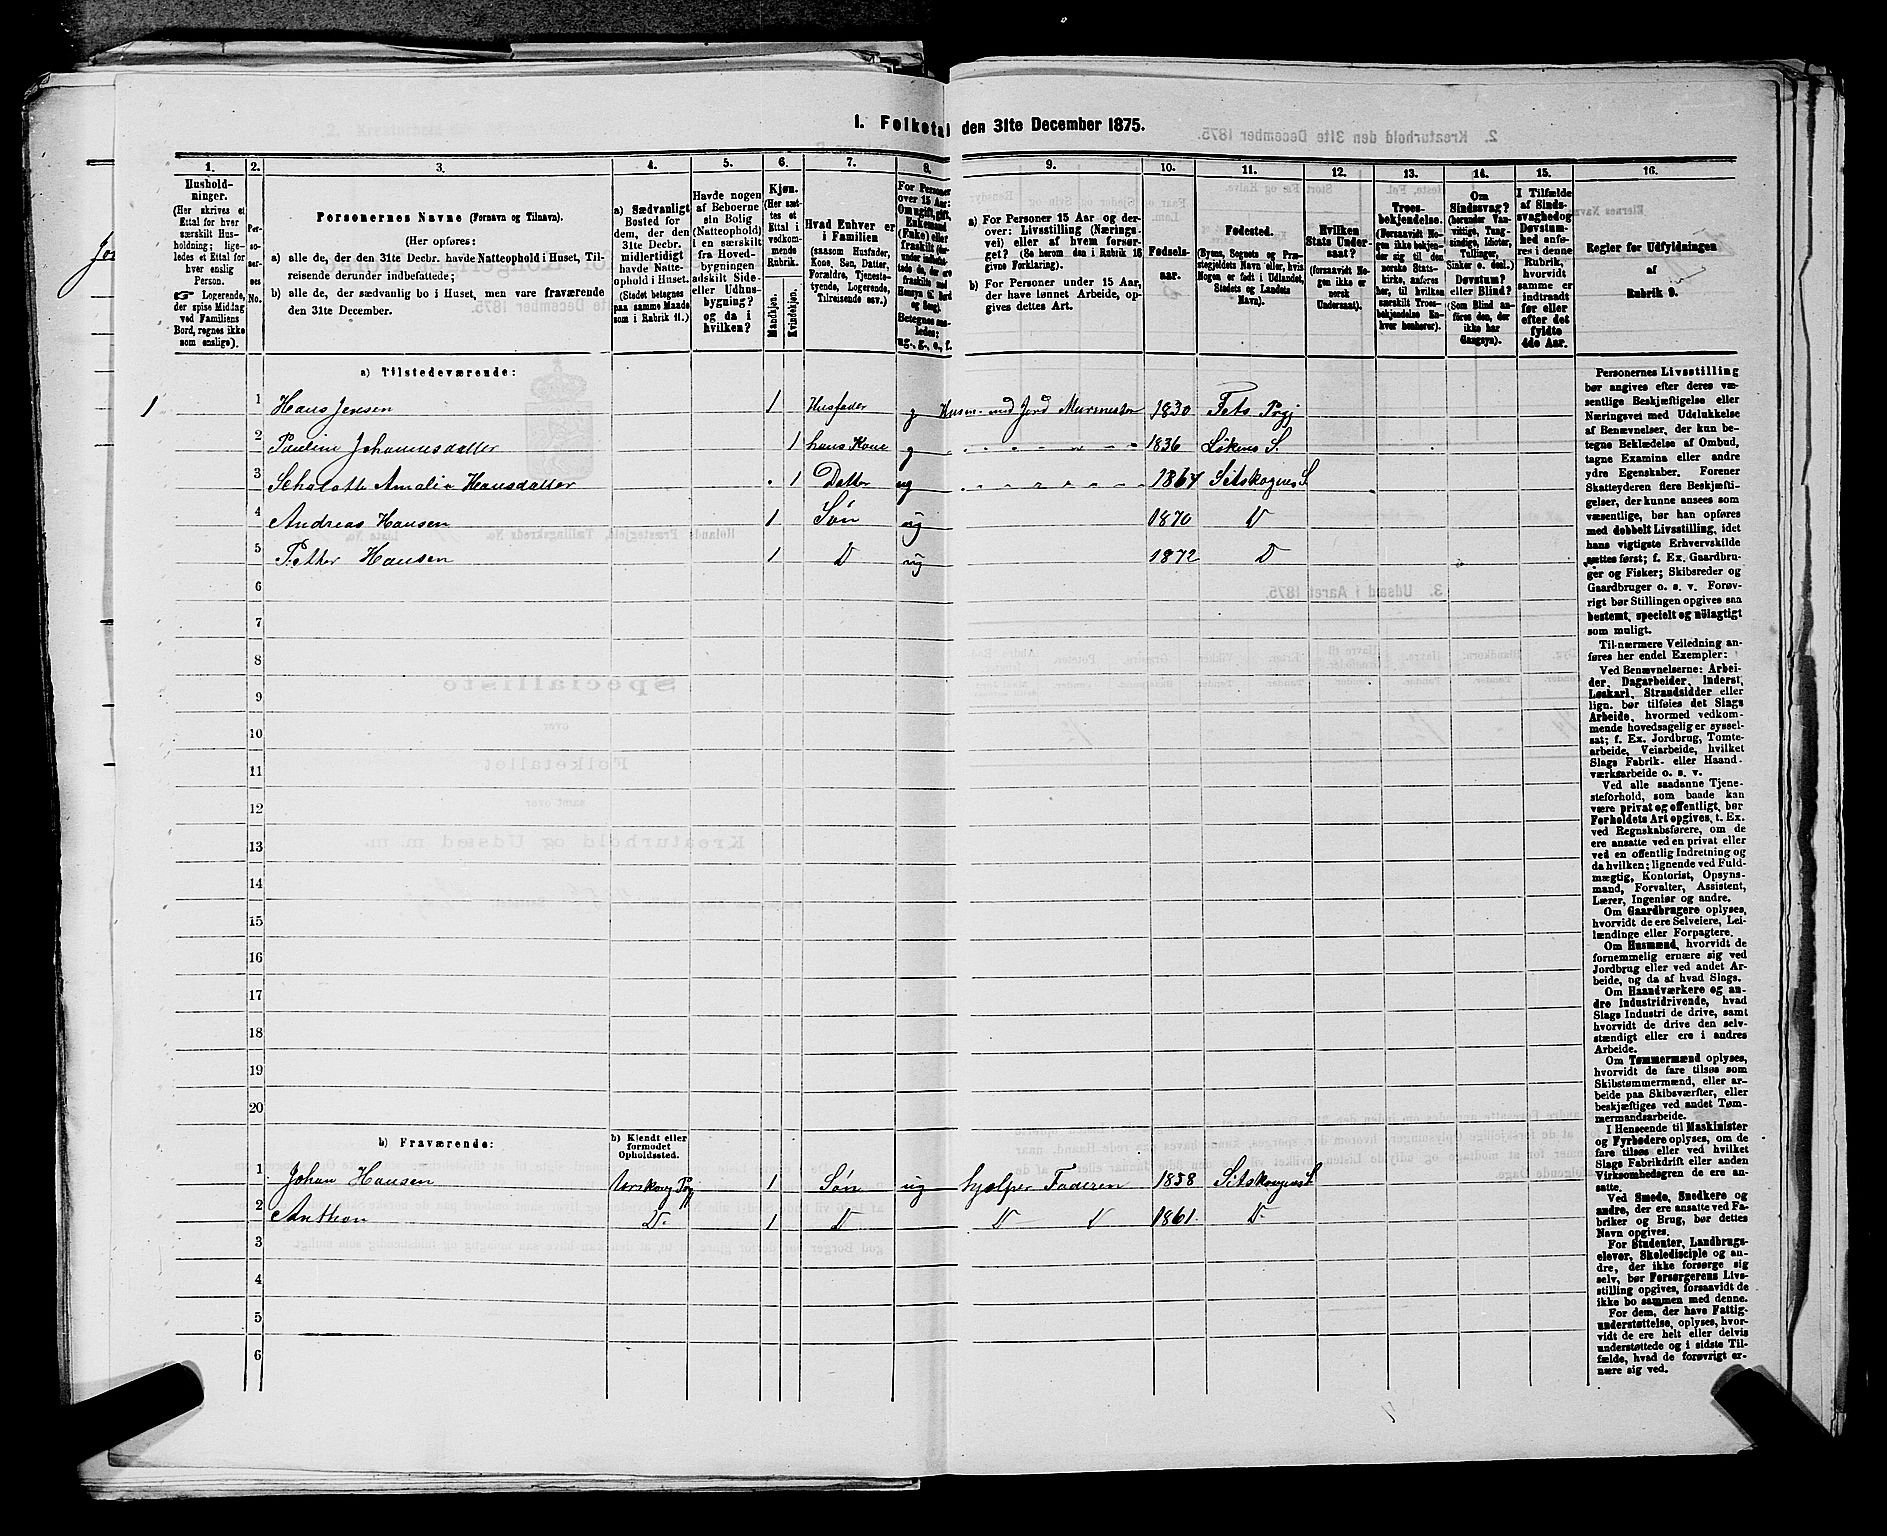 I. Folketal den 31te December 1875.
1. 2. 3. 4. 5. 6. 7. 8. 9. 10. 11. 12. 13. 14. 15. 16.
Hushold-
ninger.
(Her skrives et
Ettal for hver
særskilt Hus-
holdning; lige-
ledes et Ettal
for hver enslig
Person.
Logerende,
der spise Middag
ved Familiens
Bord, regnes ikke
som enslige).
Per-
so-
ner-
nes
No.
Personernes Navne (Fornavn og Tilnavn).
(Her opføres:
a) alle de, der den 31te Decbr. havde Natteophold i Huset, Til-
reisende derunder indbefattede;
b) alle de, der sædvanlig bo i Huset, men vare fraværende
den 31te December.
a) Sædvanligt
Bosted for
dem, der den
31te Decbr.
midlertidigt
havde Natte-
ophold i Huset.
(Stedet betegnes
paa samme Maade
som i Rubrik 11.)
Havde nogen
af Beboerne
sin Bolig
(Natteophold)
i en særskilt
fra Hoved-
bygningen
adskilt Side-
eller Udhus-
bygning?
og da i
hvilken?
Kjøn.
(Her sæt-
tes et
Ettal i
vedkom-
mende
Rubrik.
Mandkjøn.
Kvindekjøn.
Hvad Enhver er
i Familien
(saasom Husfader,
Kone, Søn, Datter,
Forældre, Tjeneste-
tyende, Logerende,
Tilreisende osv.)
For Personer
over 15 Aar:
Om ugift, gift,
Enkemand
(Enke) eller
fraskilt
Betegnes saa-
ledes:
ug., g., e., f.
a) For Personer 15 Aar og der-
over: Livsstilling (Nærings-
vei) eller af hvem forsør-
get? (Se herom den i Rubrik 16
givne Forklaring).
b) For Personer under 15 Aar,
der have lønnet Arbeide, op-
gives dettes Art.
Fødsels-
aar.
Fødested.
(Byens, Sognets og Præ-
stegjeldets Navn eller, hvis
Nogen er født i Udlandet,
Stedets og Landets
Navn).
Hvilken
Stats Under-
saat?
(forsaavidt No-
gen ikke er
norsk
Undersaat).
Troes-
bekjendelse.
(Forsaavidt No-
gen ikke bekjen-
der sig til den
norske Stats-
kirke, anføres
her, til hvilken
særskilt Troes-
bekjendelse En-
hver henhører).
Om
Sindssvag?
(herunder Van-
vittige, Tung-
sindige, Idioter,
Tullinger,
Sinker o. desl.)
Døvstum?
eller Blind?
(Som Blind an-
føres den, der
ikke har
Gangsyn).
I Tilfælde
af Sinds-
svaghed og
Døvstum-
hed anfø-
res i denne
Rubrik,
hvorvidt
samme er
indtraadt
før eller
efter det
fyldte
4de Aar.
Regler for Udfyldningen
af
Rubrik 9.
a) Tilstedeværende:
1 1 Hans Jensen 1 Husfader g Husm. med Jord Murmester 1830 Fets Pgj
2 Pauline Johannesdatter 1 hans Kone g - - - - - - 1836 Løkens S.
3 Schalotte Amalie Hansdatter 1 Datter ug - - - - - - 1864 Sitskogens S
4 Andreas Hansen 1 Søn ug 1870 D
5 Petter Hansen 1 D ug 1872 D
6
7
8
9
10
11
12
13
14
15
16
17
18
19
20
b) Fraværende:
b) Kjendt eller
formodet
Opholdssted.
1 Johan Hansen Urskoug Pgj 1 Søn ug hjælper Faderen 1858 Sitskougens S
2 Anthon D. 1 D D D 1861. D.
3
4
5
6
Personernes Livsstilling
bør angives efter deres væ-
sentlige Beskjæftigelse eller
Næringsvei med Udelukkelse
af Benævnelser, der kun be-
tegne Beklædelse af Ombud,
tagne Examina eller andre
ydre Egenskaber. Forener
Skatteyderen flere Beskjæfti-
gelser, der kunne ansees som
væsentlige, bør han opføres
med dobbelt Livsstilling, idet
hans vigtigste Erhvervskilde
sættes først; f. Ex. Gaardbru-
ger og Fisker; Skibsreder og
Gaardbruger o. s. v. Forøv-
rigt bør Stillingen opgives saa
bestemt, specielt og nøiagtigt
som muligt.
Til nærmere Veiledning an-
føres her endel Exempler:
Ved Benævnelserne: Arbei-
der, Dagarbeider, Inderst,
Løskarl, Strandsidder eller
lign. bør tilføies det Slags
Arbeide, hvormed vedkom-
mende hovedsagelig er syssel-
sat; f. Ex. Jordbrug, Tomte-
arbeide, Veiarbeide, hvilket
Slags Fabrik- eller Haand-
værksarbeide o. s. v.
Ved alle saadanne Tjene-
steforhold, som baade kan
være privat og offentligt, bør
Forholdets Art opgives, t. Ex.
ved Regnskabsførere, om de
ere ansatte ved en privat eller
ved en offentlig Indretning og
da hvilken; lignende ved Fuld-
mægtig, Kontorist, Opsyns-
mand, Forvalter, Assistent,
Lærer, Ingeniør og andre.
Om Gaardbrugere oplyses,
hvorvidt de ere Selveiere, Lei-
lændinge eller Forpagtere.
Om Husmænd, hvorvidt de
fornemmelig ernære sig ved
Jordbrug eller ved andet Ar-
beide, og da af hvad Slags.
Om Haandværkere og an-
dre Industridrivende, hvad
Slags Industri de drive, samt
hvorvidt de drive den selv-
stændigt eller ere i andres
Arbeide.
Om Tømmermænd oplyses,
hvorvidt de fare tilsøs som
Skibstømmermænd, eller ar-
beide paa Skibsværfter, eller
beskjæftiges ved andet Tøm-
mermandsarbeide.
I Henseende til Maskinister
og Fyrbødere oplyses, om de
fare tilsøs eller ved hvilket
Slags Fabrikdrift eller anden
Virksomhedsgren de ere an-
satte.
Ved Smede, Snedkere og
andre, der ere ansatte ved Fa-
briker og Brug, bør dettes
Navn opgives.
For Studenter, Landbrugs-
elever, Skoledisciple og an-
dre, der ikke forsørge sig
selv, bør Forsørgerens Livs-
stilling opgives, forsaavidt de
ikke bo sammen med denne.
For dem, der have Fattig-
understøttelse, oplyses, hvor-
vidt de ere helt eller delvis
understøttede og i sidste Til-
fælde, hvad de forøvrigt er-
nære sig ved.